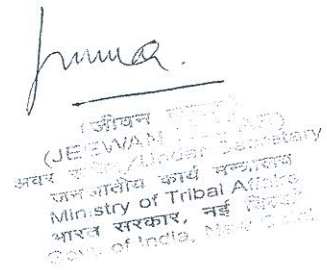 (जीवन
(JEEWAN
अवर सचिव/Under Secretary
जनजातीय कार्य मन्त्रालय
Ministry of Tribal Affairs
भारत सरकार, नई दिल्ली
Govt. of India, New Delhi